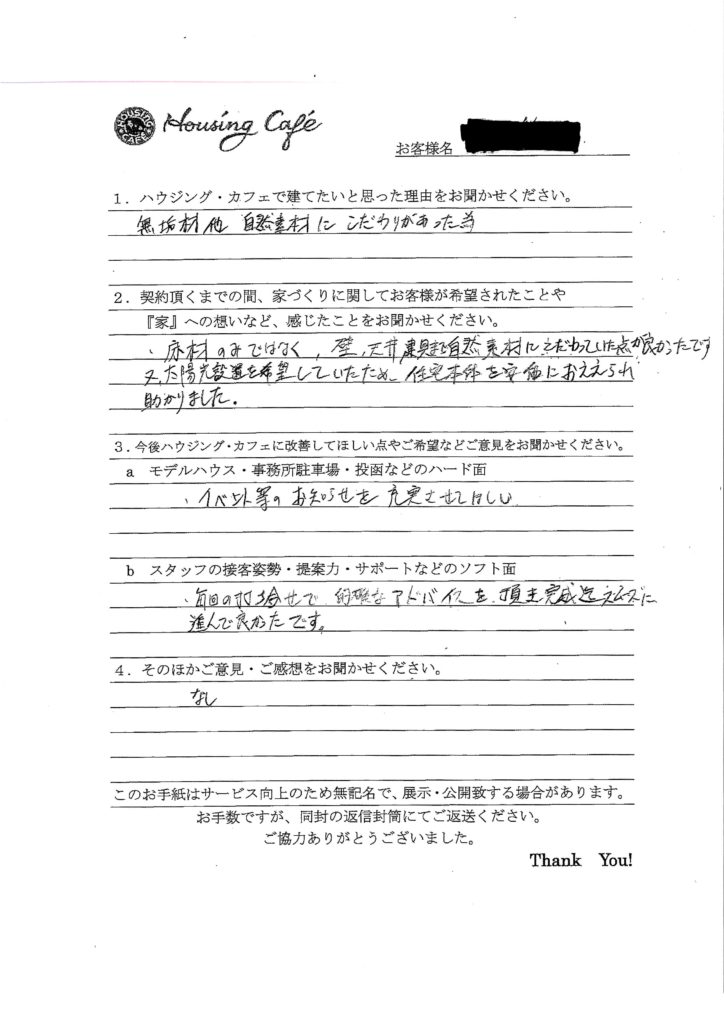 HOUSING CAFE
Housing Café
お客様名
1．ハウジング・カフェで建てたいと思った理由をお聞かせください。
無垢材他 自然素材に こだわりがあった為
2．契約頂くまでの間、家づくりに関してお客様が希望されたことや
『家』への想いなど、感じたことをお聞かせください。
・床材のみではなく，壁，天井，建具まで自然素材にこだわっていた点が良かったです
又，太陽光設置を希望していたため、住宅本体を安価におさえられ
助かりました。
3．今後ハウジング・カフェに改善してほしい点やご希望などご意見をお聞かせください。
a モデルハウス・事務所駐車場・投函などのハード面
・イベント等の お知らせを 充実させてほしい
b スタッフの接客姿勢・提案力・サポートなどのソフト面
・毎回の打ち合せで 的確なアドバイスを 頂き完成迄スムーズに
進んで良かったです。
4．そのほかご意見・ご感想をお聞かせください。
なし
このお手紙はサービス向上のため無記名で、展示・公開致する場合があります。
お手数ですが、同封の返信封筒にてご返送ください。
ご協力ありがとうございました。
Thank You!